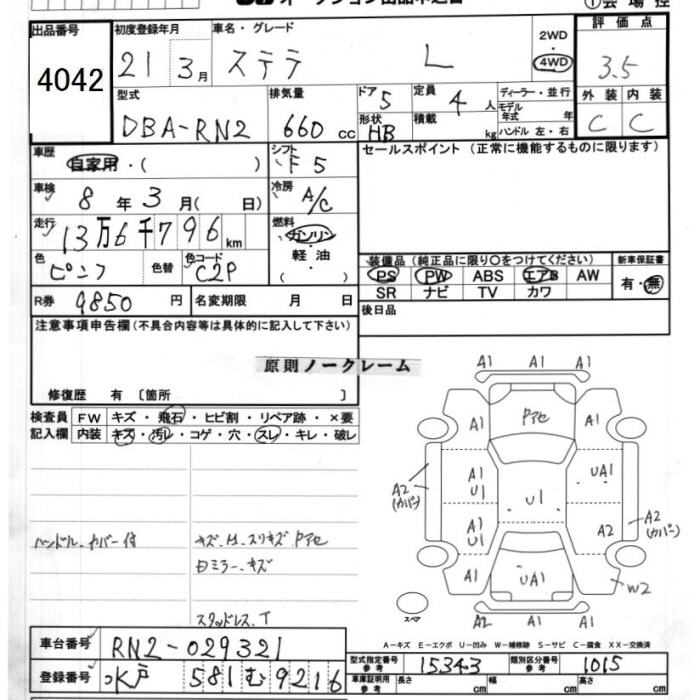 オークション出品申込書
①会場控
出品番号 初度登録年月 車名・グレード 2WD 評価点
4042 21 3月 ステラ L ・ 4WD 3.5
型式 排気量 ドア 5 定員 4人 ディーラー・並行 外装 内装
DBA-RN2 660 cc 形状 HB 積載 kg モデル年式 年 C C
ハンドル 左・右
車歴 自家用・( ) シフト F5 セールスポイント (正常に機能するものに限ります)
車検 8年 3月( 日) 冷房 A/C
走行 13万6千796km 燃料 ガソリン・軽油・( )
色 色替 色コード C2P 装備品 (純正品に限り〇をつけてください) 新車保証書
PS PW ABS エアB AW 有・無
R券 9850円 名変期限 月 日 SR ナビ TV カワ
注意事項申告欄(不具合内容等は具体的に記入して下さい) 後日品
原則ノークレーム
修復歴 有 〔箇所 〕
検査員 FW キズ・飛石・ヒビ割・リペア跡・×要
記入欄 内装 キズ・汚レ・コゲ・穴・スレ・キレ・破レ
A1 A1 A1
A1 Pアセ A1
A1 U1 UA1
A2 (カバー) U1
A1 U1 A2 A2 (カバー)
A1 UA1 W2
A2 A1 A1
スペア
ハンドルカバー付 キズ、H、スリキズ Pアセ
ミラーキズ
スタッドレス、T
A-キズ E-エクボ U-凹み W-補修跡 S-サビ C-腐食 XX-交換済
車台番号 RN2-029321 型式指定番号 参考 15343 類別区分番号 参考 1015
登録番号 水戸 581 む 9216 車庫証明用 参考 長さ cm 幅 cm 高さ cm